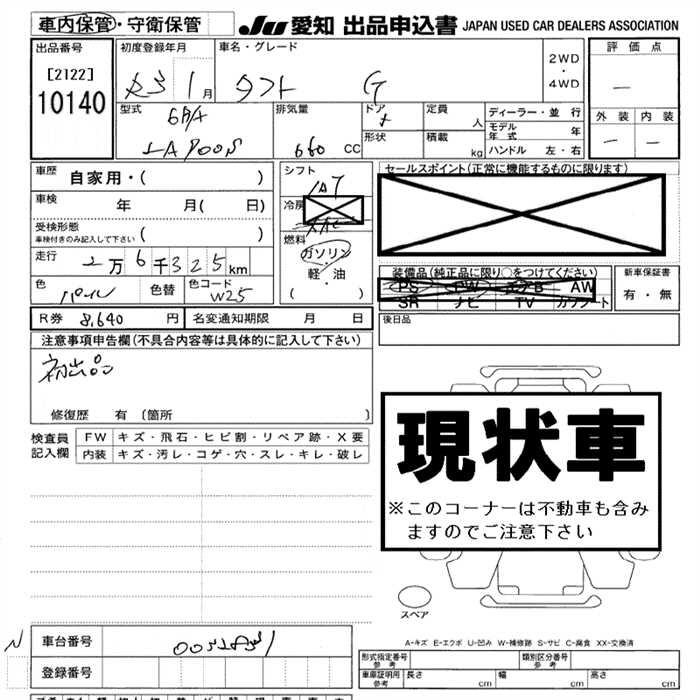 車内保管・守衛保管 JU 愛知 出品申込書 JAPAN USED CAR DEALERS ASSOCIATION
出品番号 初度登録年月 車名・グレード 2WD・4WD 評価点
[2122] 3 1月 タフト G
10140 型式 6BA 排気量 ドア 定員 人 ディーラー・並行 外装 内装
LA900S 660 CC 形状 積載 kg モデル年式 年
ハンドル 左・右
車歴 自家用・( ) シフト セールスポイント(正常に機能するものに限ります)
車検 年 月( 日) 冷房
受検形態
車検付きのみ記入して下さい ( ) 燃料
走行 2万6千325km ガソリン・軽・油 ( ) 装備品(純正品に限り○をつけてください) 新車保証書
色 パール 色替 色コード W25 PS PW AW 有・無
SR ナビ TV カワシート
R券 8,640 円 名変通知期限 月 日 後日品
注意事項申告欄(不具合内容等は具体的に記入して下さい)
初出品
修復歴 有 [箇所 ]
検査員記入欄 FW キズ・飛石・ヒビ割・リペア跡・X要
内装 キズ・汚レ・コゲ・穴・スレ・キレ・破レ
現状車
※このコーナーは不動車も含み
ますのでご注意下さい
スペア
A-キズ E-エクボ U-凹み W-補修跡 S-サビ C-腐食 XX-交換済
N 車台番号
登録番号
形式指定番号 参考 類別区分番号 参考
車庫証明用 参考 長さ cm 幅 cm 高さ cm